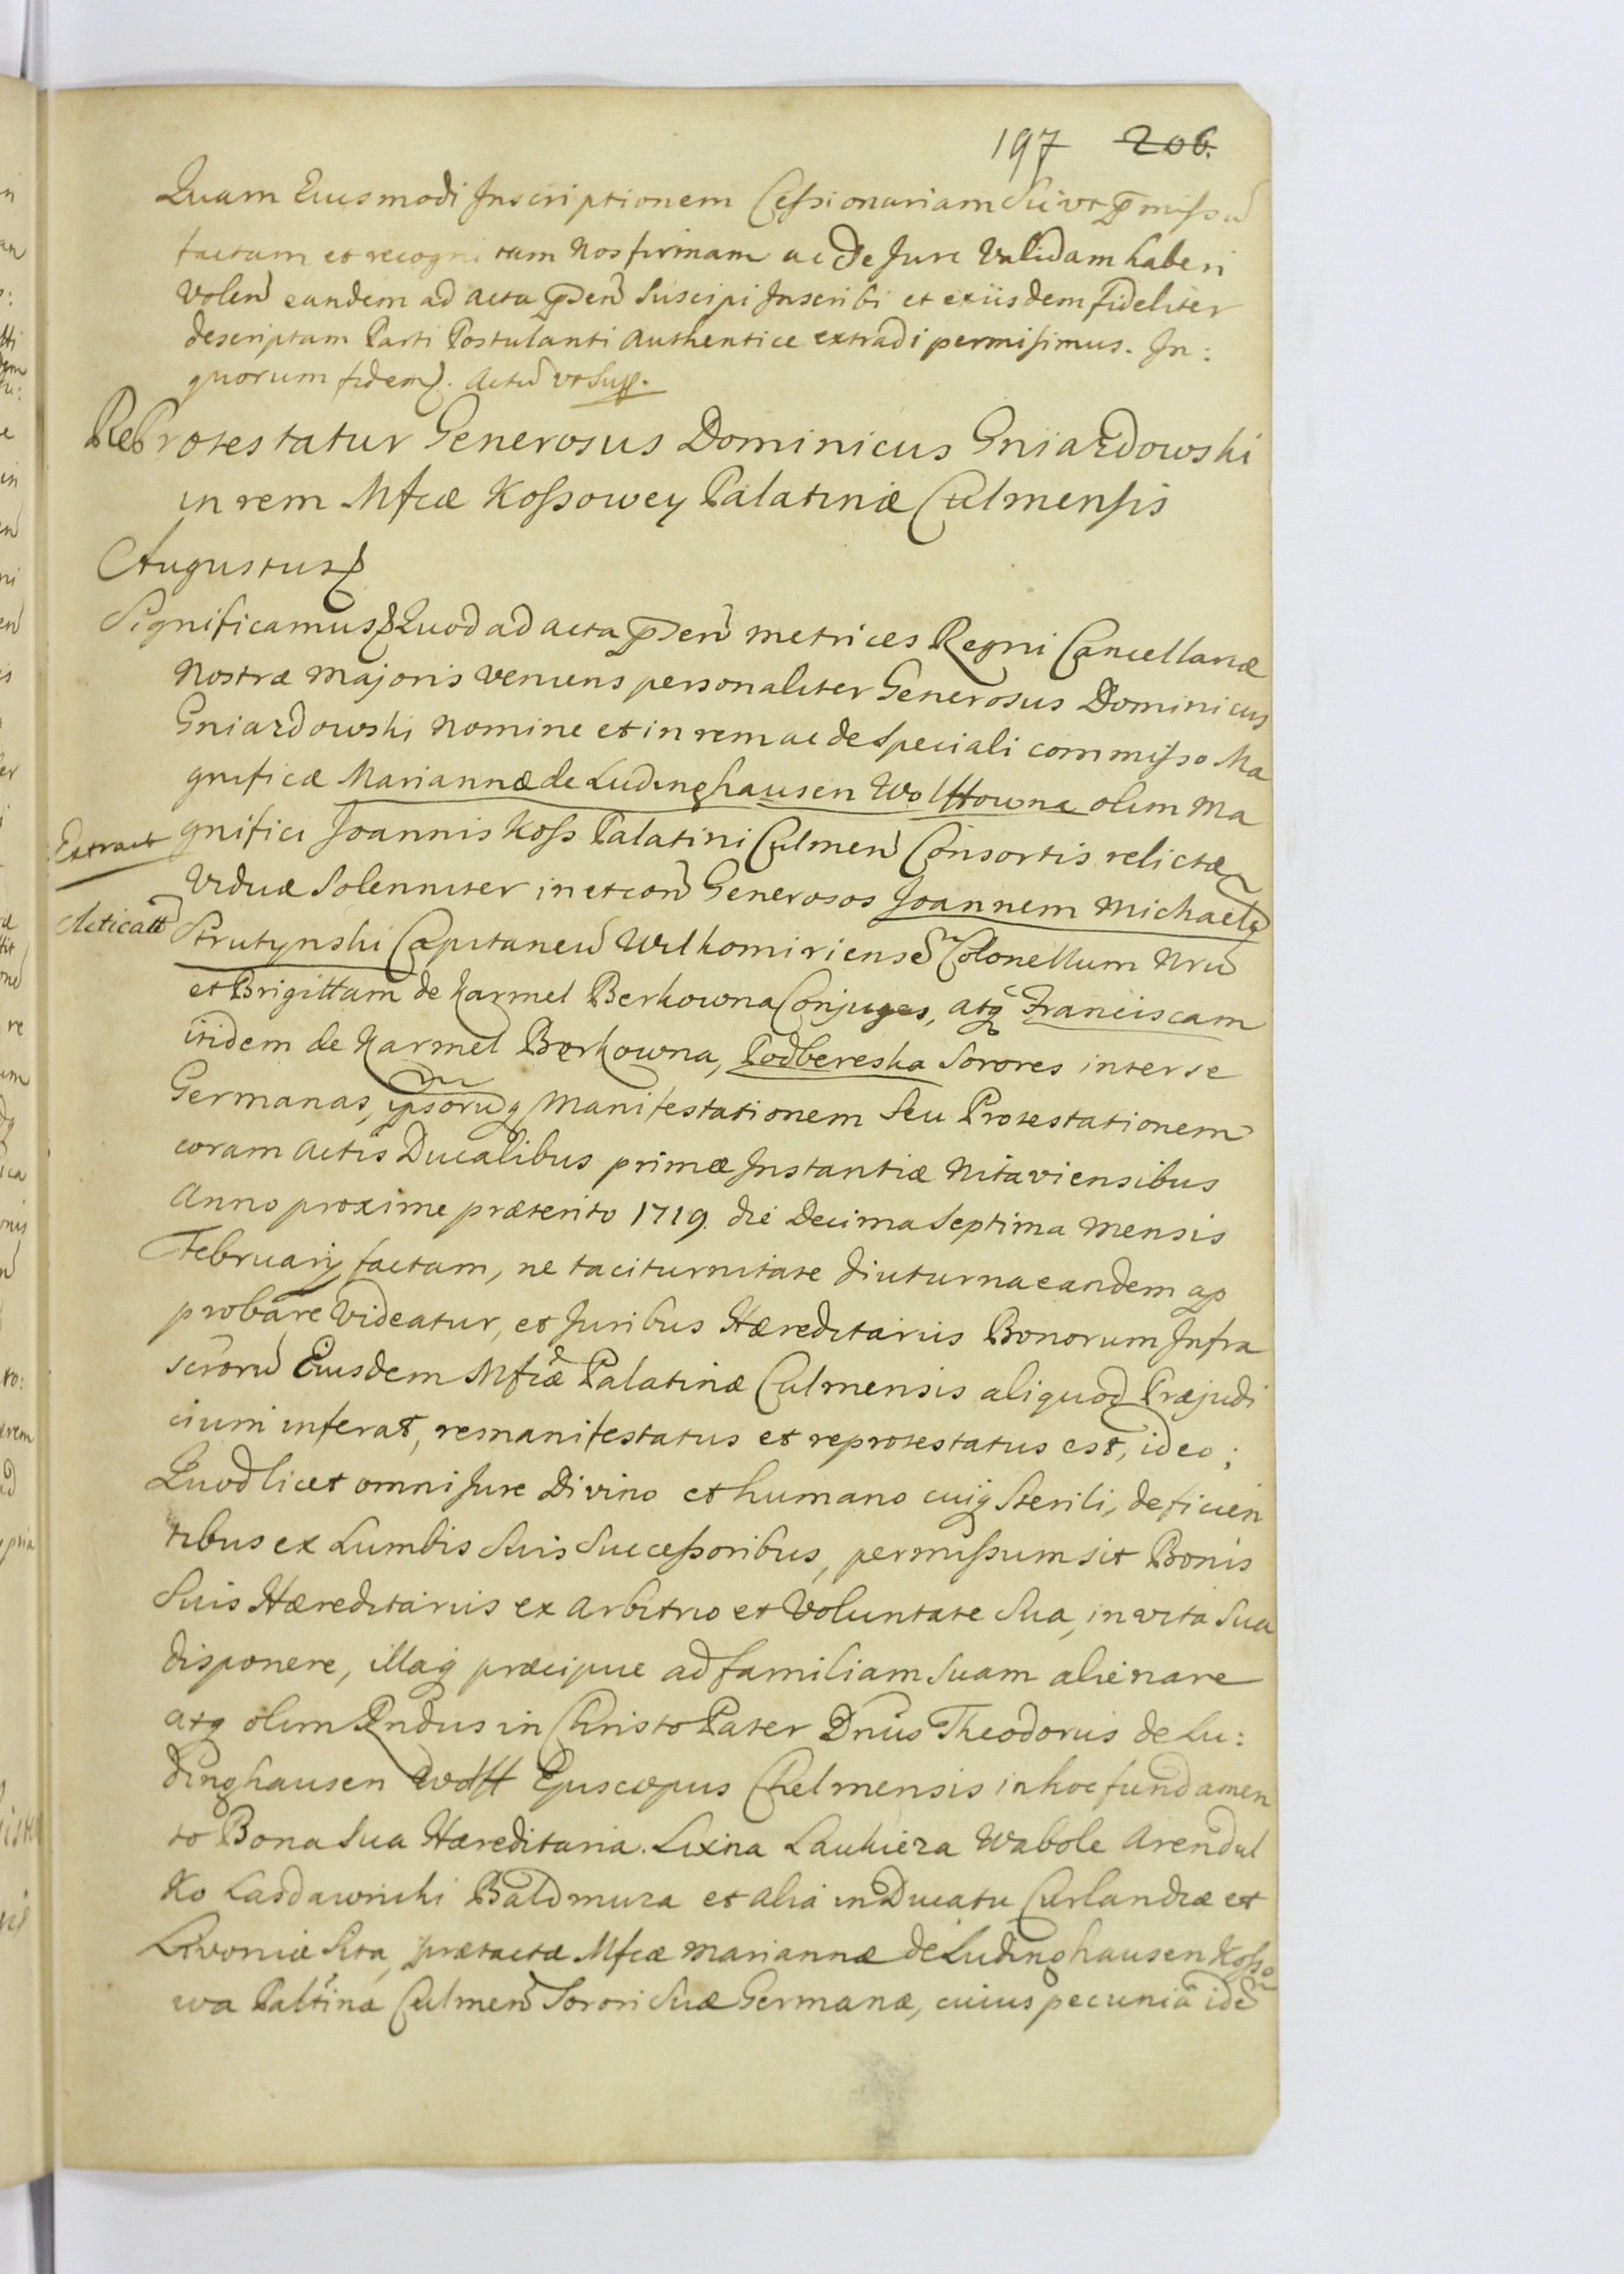 197 206.
Quam Eiusmodi Inscriptionem Cessionariam Sic ut p̄missũ
factam et recognitam Nos firmam ac de Jure Validam haberi
Volen̄ eandem ad acta p̄sen̄ Suscipi Inscribi et exiisdem fideliter
descriptam Parti Postulanti Authentice extradi permisimus. In:
quorum fidem. Actũ ut Sup.
ReProtestatur Generosus Dominicus Gniazdowski
in rem Mfcæ Kossowey Palatinæ Culmensis
Augustus
Significamus Quod ad acta p̄sen̄ metrices Regni Cancellariæ
Nostræ Majoris veniens personaliter Generosus Dominicus
Gniazdowski Nomine et in rem ac de Speciali commisso Ma
gnificæ Mariannæ de Ludinghausen Wolffowna olim Ma
Extract
gnifici Joannis Koss Palatini Culmen̄ Consortis relictæ
Viduæ Solenniter in et con̄ Generosos Joannem Michaelẽ
Acticatt
Strutynski Capitaneũ Wilkomiriensẽ Colonellum Nrũ
et Brigittam de Karmel Berkowna Conjuges, atq Franciscam
itidem de Karmel Berkowna, Podbereska Sorores inter se
Germanas, ipsorũq Manifestationem Seu Protestationem
coram Actis Ducalibus primæ Instantiæ Mitaviensibus
Anno proxime præterito 1719. die Decima Septima mensis
Februarij factam, ne taciturnitate diuturna eandem ap
probare Videatur, et Juribus Hæreditariis Bonorum Infra
scrorũ Eiusdem Mfcæ Palatinæ Culmensis aliquod Præjudi
cium inferat, remanifestatus et reprotestatus est, ideo;
Quod licet omni Jure Divino et humano cuiq Sterili, deficien
tibus ex Lumbis Suis Successoribus, permissum sit Bonis
Suis Hæreditariis ex Arbitrio et Voluntate Sua, in vita Sua
disponere, illaq præcipue ad familiam Suam alienare
atq olim Rndus in Christo Pater Dnus Theodorus de Lu:
dinghausen Wolff Episcopus Chelmensis in hoc fundamen
to Bona Sua Hæreditaria. Lixna Laukieza Wabole Arendul
Ko Lasdawniki Baldmuza et alia in Ducatu Curlandiæ et
Livoniæ Sita, prætactæ Mfcæ Mariannæ de Ludinghausen Kosso
wa Paltinæ Culmen̄ Sorori Suæ Germanæ, cuius pecuniã idẽ